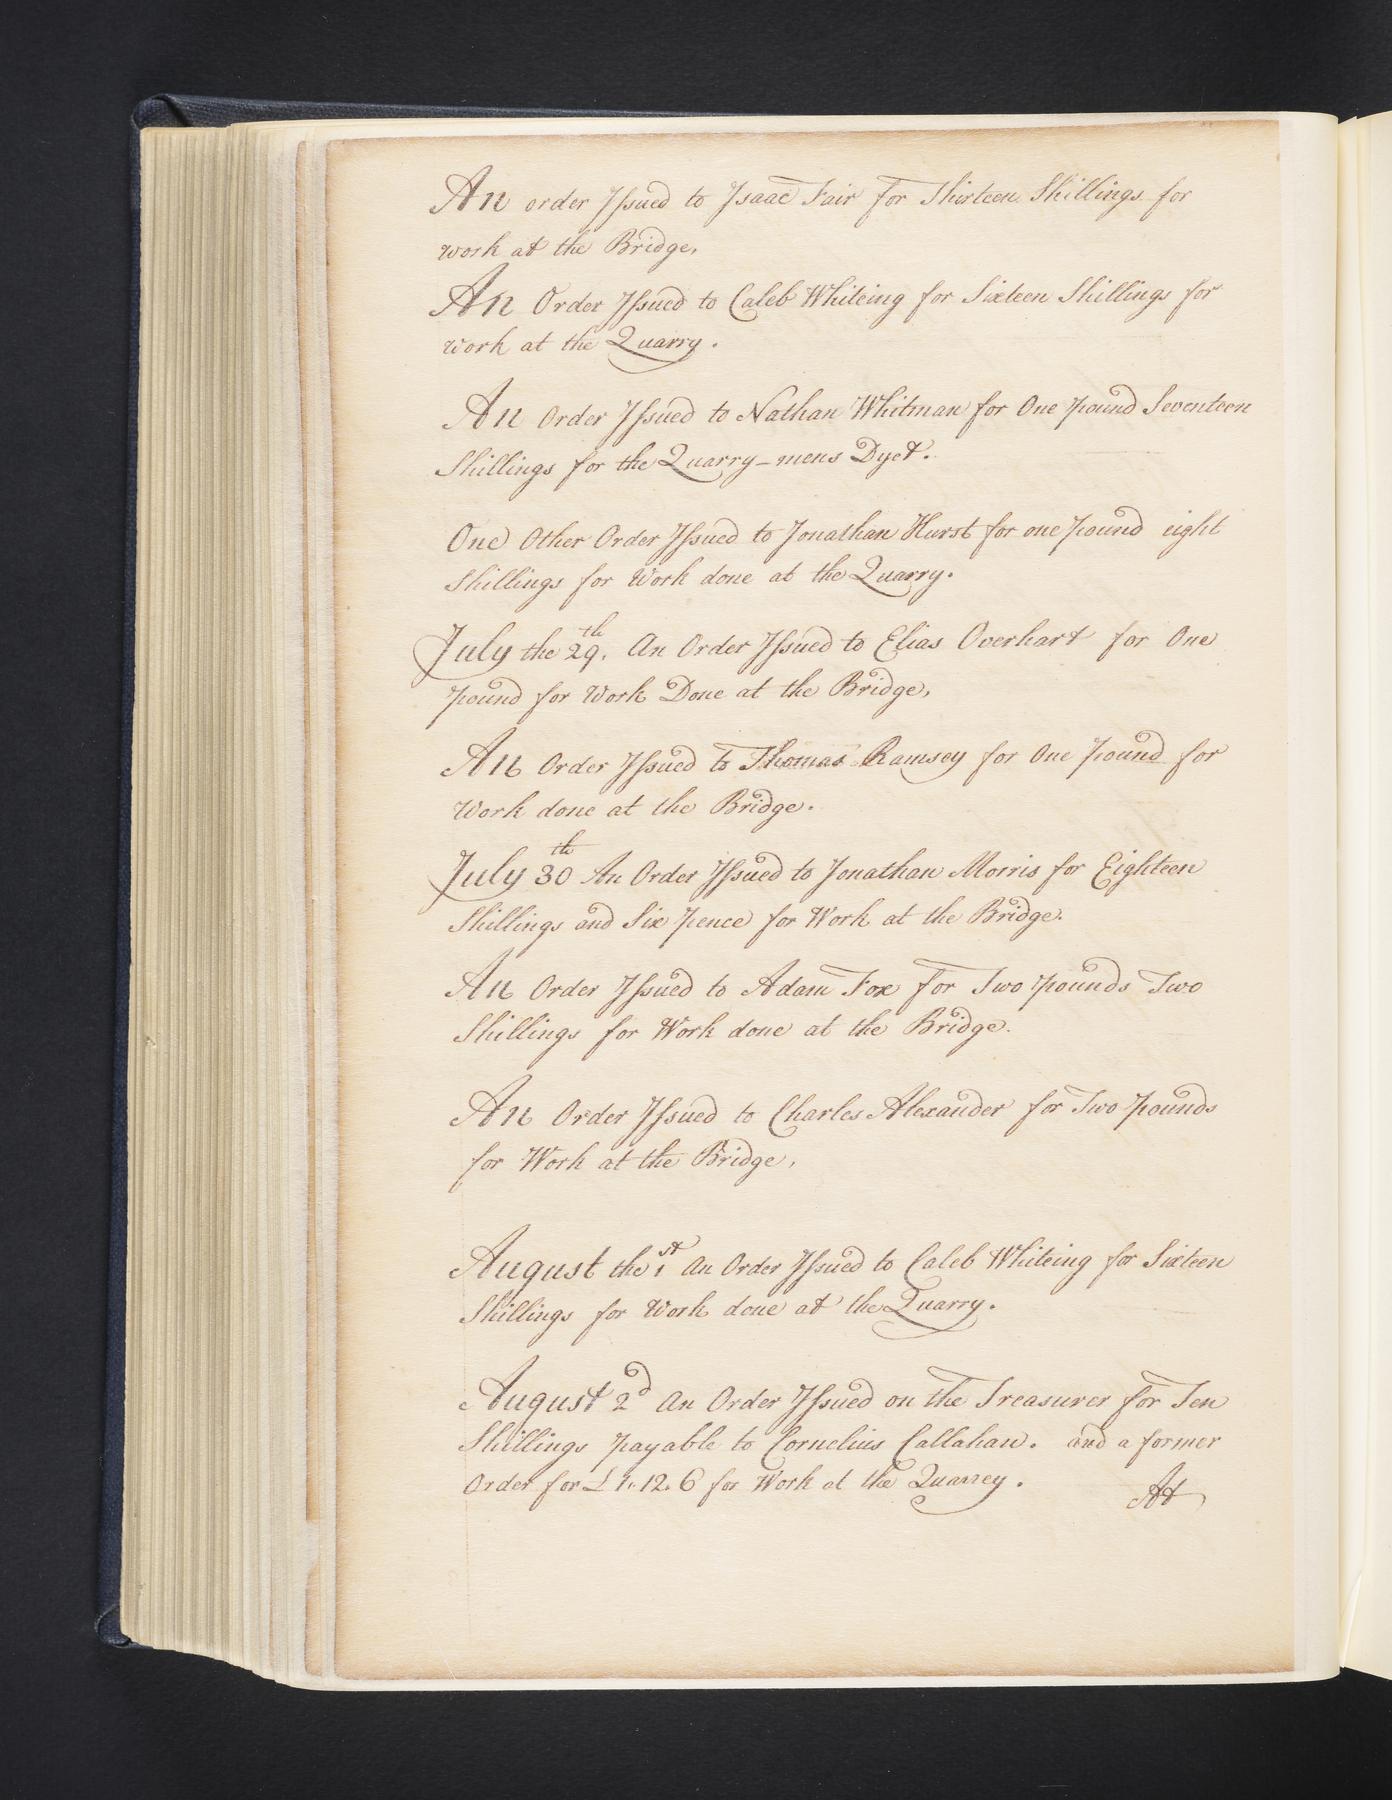 An order Issued to Isaac Fair for Thirteen Shillings for
work at the Bridge,
An Order Issued to Caleb Whiteing for Sixteen Shillings for
work at the Quarry.
An Order Issued to Nathan Whitman for One pound Seventeen
Shillings for the Quarry-mens Dyet.
One Other Order Issued to Jonathan Hurst for one pound eight
Shillings for Work done at the Quarry.
July the 29th. An Order Issued to Elias Overhart for One
pound for Work Done at the Bridge,
An Order Issued to Thomas Ramsey for One pound for
Work done at the Bridge.
July 30th An Order Issued to Jonathan Morris for Eighteen
Shillings and Six pence for Work at the Bridge.
An Order Issued to Adam Fox for Two pounds Two
Shillings for Work done at the Bridge.
An Order Issued to Charles Alexander for Two pounds
for Work at the Bridge,
August the 1st An Order Issued to Caleb Whiteing for Sixteen
Shillings for Work done at the Quarry.
August 2d An Order Issued on the Treasurer for Ten
Shillings payable to Cornelius Callahan. and a former
Order for £ 1.12.6 for Work at the Quarrey.
At